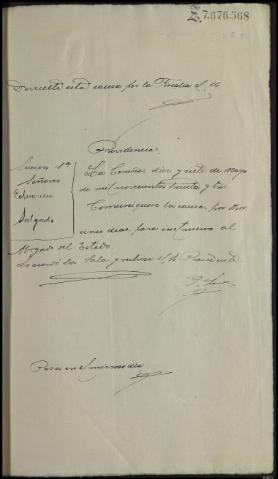 7.676.568
Devuelta esta causa por la Fiscalía el 16
Providencia
Sección 1ª
Señores
Salgado
La Coruña diez y siete de Mayo
de mil novecientos treinta y dos
Comuníquese la causa por otros
cinco días para instrucción al
Abogado del Estado.
Lo acordó la Sala y rubrica el Sr Presidente
Pasa en el mismo día